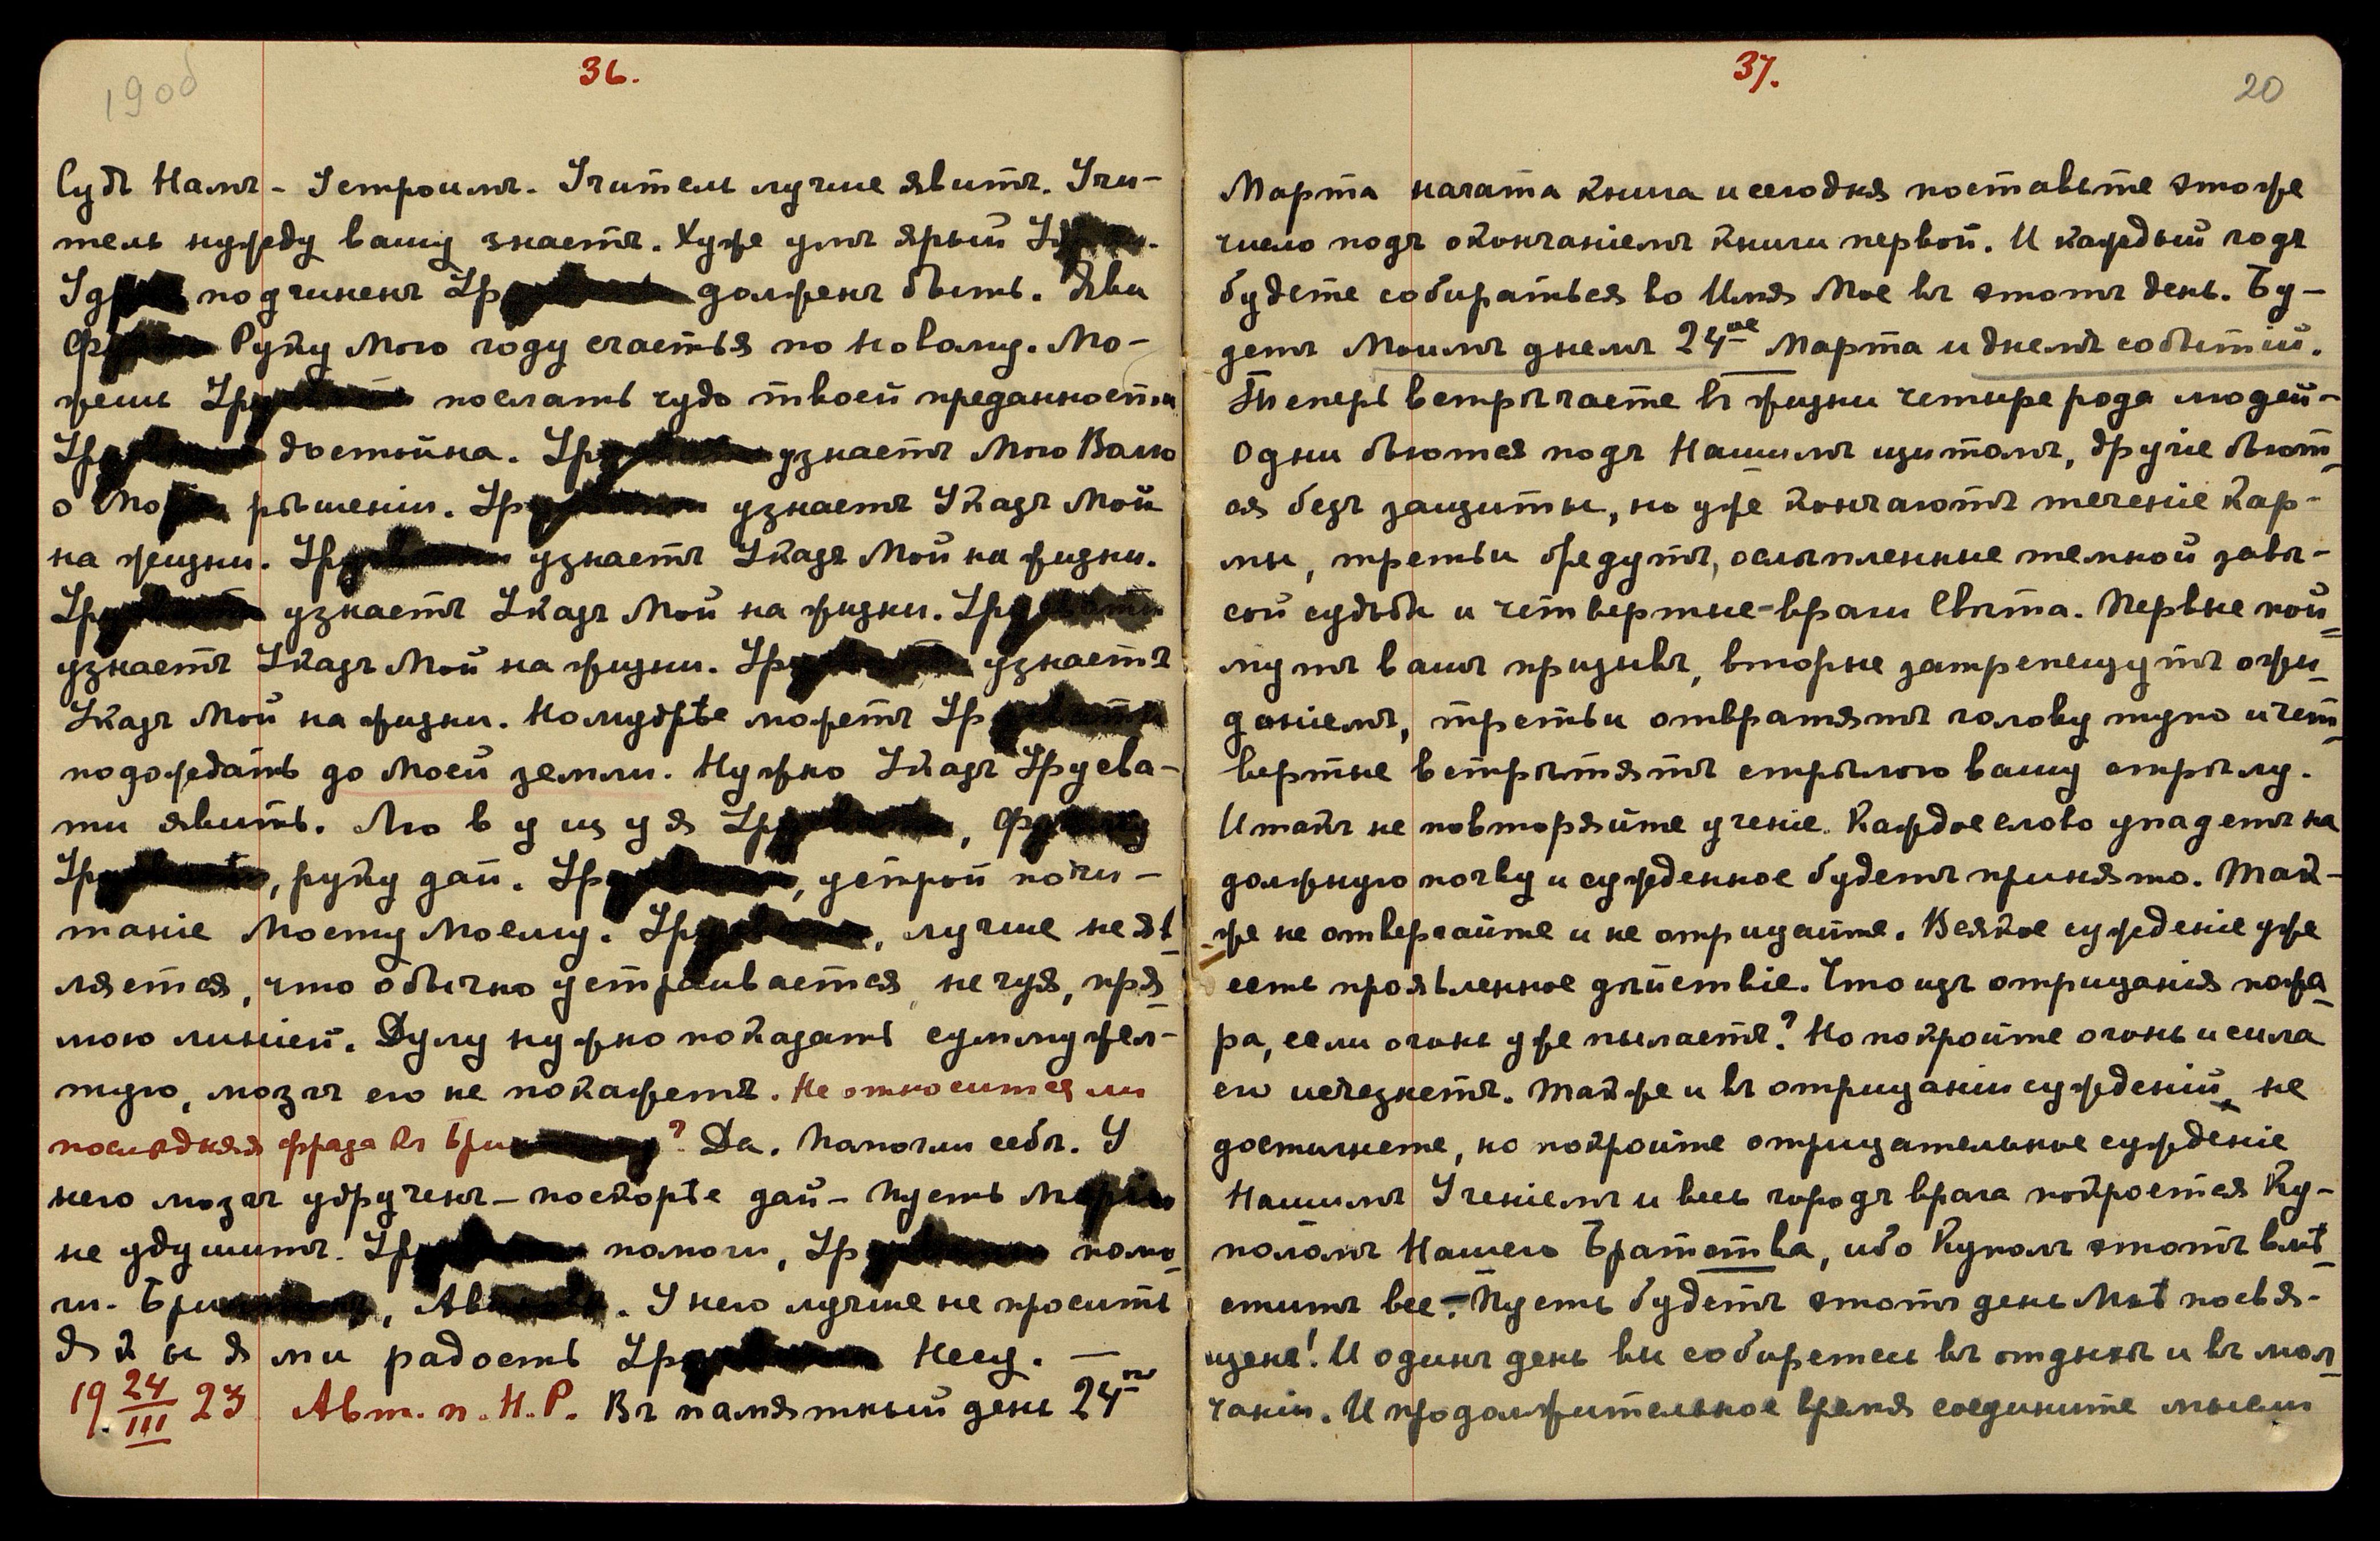 190об
36.
Судъ Намъ - Устроимъ. Учитель лучше явитъ. Учи-
тель нужду вашу знаетъ. Хуже умъ ярый
подчиненъ Ур должен быть. Яви
Руку Мою году счастья по новому. Мо-
жешь Ур послать чудо твоей преданности
Ур достойна. Ур узнаетъ Мою Волю
о рѣшеніи. Ур узнаетъ Указъ Мой
на жизни. Ур узнаетъ Указъ Мой на жизни.
Ур узнаетъ Указъ Мой на жизни. Ур
узнаетъ Указъ Мой на жизни. Ур узнаетъ
Указъ Мой на жизни. Но мудрѣе можетъ Ур
подождать до Моей земли. Нужно Указъ Урусва-
ти явить. Лю в у щ у я Ур ,
Ур , руку дай. Ур , устрой почи-
таніе Мосту Моему. Ур , лучше не яв
ляется, что обычно устраивается, не чуя, пря-
мою линіей. Думу нужно показать сумму жел-
тую, мозгъ его не покажетъ. Не относится ли
последняя фраза къ Бри ? Да. Помоги себѣ. У
него мозгъ удрученъ - поскорѣе дай - Пусть
не удушитъ. Ур помоги, Ур помо-
ги. Бри , Ав . У него лучше не просить
Я й ы я ми радость Ур Несу. —
19 24/III 23 Авт. п. Н. Р. Въ памятный день 24го
37.
20
Марта начата книга и сегодня поставьте это же
число подъ окончаніемъ книги первой. И каждый годъ
будете собираться во Имя Мое въ этотъ день. Бу-
детъ Моимъ днемъ 24ое Марта и днемъ событій.
Теперь встрѣчаете въ жизни четыре рода людей -
одни бьются подъ Нашимъ щитомъ, другіе бьют-
ся безъ защиты, но уже кончаютъ теченіе Кар-
мы, третьи бредутъ, ослѣпленные темной завѣ-
сой судьбы и четвертые - враги Свѣта. Первые пой-
мутъ вашъ призывъ, вторые затрепещутъ ожи-
даніемъ, третьи отвратятъ голову тупо и чет-
вертые встрѣтятъ стрѣлою вашу стрѣлу.
Итакъ не повторяйте ученіе. Каждое слово упадетъ на
должную почву и сужденное будетъ принято. Так-
же не отвергайте и не отрицайте. Всякое сужденіе уже
есть проявленное дѣйствіе. Что изъ отрицанія пожа-
ра, если огонь уже пылаетъ? Но покройте огонь и сила
его исчезнетъ. Также и въ отрицаніи сужденій не
достигнете, но покройте отрицательное сужденіе
Нашимъ Ученіемъ и весь городъ врага покроется Ку-
поломъ Нашего Братства, ибо Куполъ этотъ вмѣ-
ститъ все. - Пусть будетъ этотъ день Мнѣ посвя-
щенъ! И одинъ день вы соберетесь въ отдыхѣ и въ мол-
чаніи. И продолжительное время соедините мысли